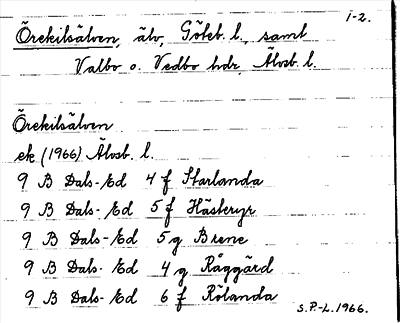 1-2.
Örekilsälven, älv, Göteb. l., samt
Valbo o. Vedbo hdr, Älvsb. l.
Örekilsälven
ek (1966) Älvsb. l.
9 B Dals-Ed 4 f Starlanda
9 B Dals-Ed 5 f Hästeryr
9 B Dals-Ed 5 g Brene
9 B Dals-Ed 4 g Råggärd
9 B Dals-Ed 6 f Rölanda
S.P-L. 1966.